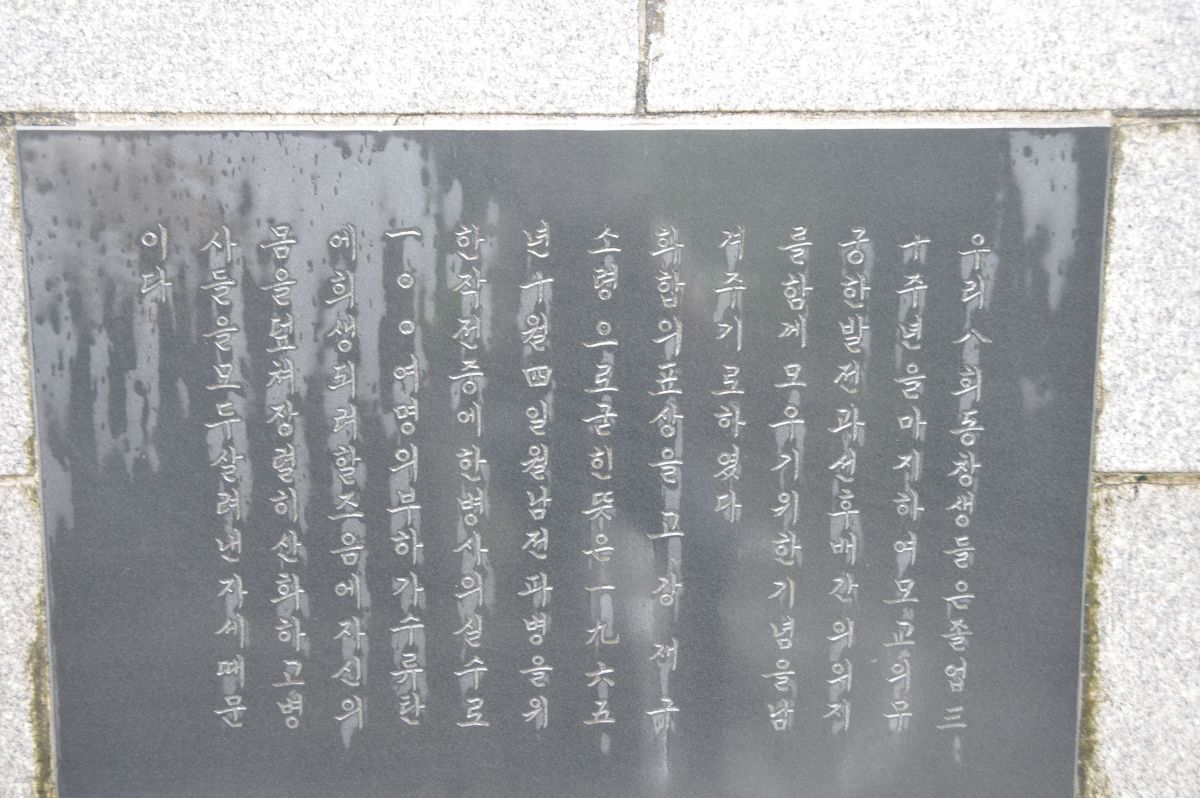 우리八회동창생들은졸업三
十주년을마지하여모교의무
궁한발전과선후배간의의지
를함께모우기위한기념을남
겨주기로하였다
화합의표상을고 강 재구
소령 으로굳힌뜻은一九六五
년十월四일월남전파병을위
한작전중에한병사의실수로
一ㅇㅇ여명의부하가수류탄
에희생되려할즈음에자신의
몸을덮쳐장렬히산화하고병
사들을모두살려낸자세때문
이다